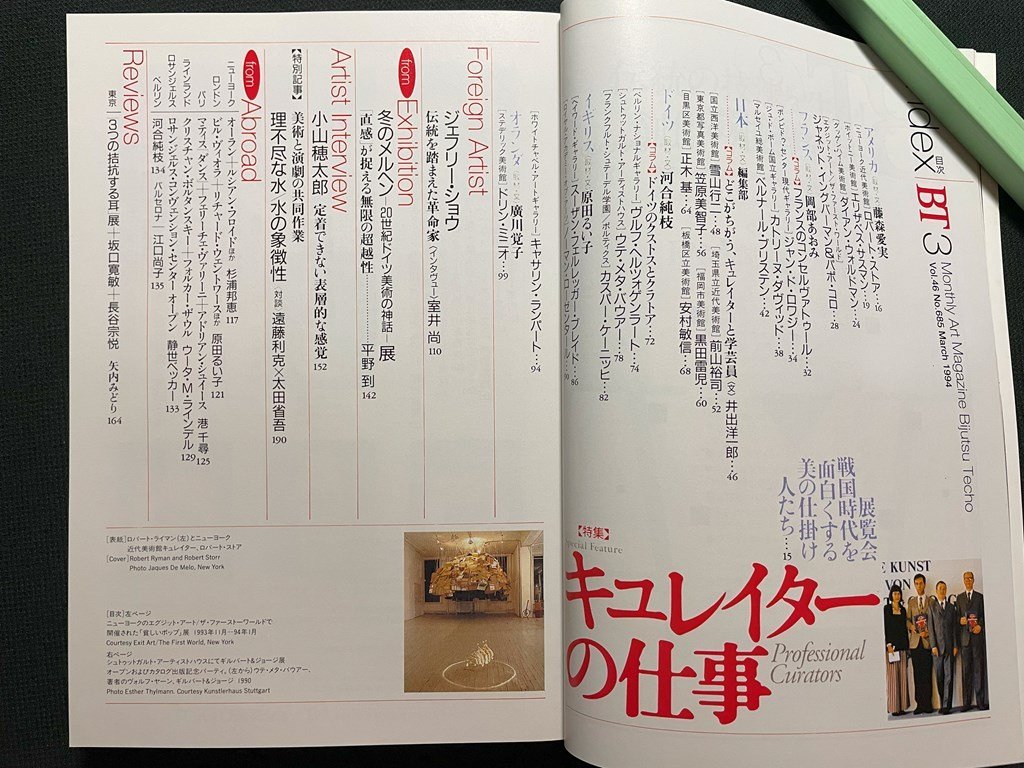 Index 目次 BT 3 Monthly Art Magazine Bijutsu Techo
Vol.46 No.685 March 1994
展覧会
戦国時代を
面白くする
美の仕掛け
人たち…15
【特集】
Special Feature
キュレイター
の仕事
Professional
Curators
アメリカ 藤森愛実
[ニューヨーク近代美術館] ロバート・ストア…16
エリザベス・サスマン…19
[ホイットニー美術館]
ダイアン・ウォルドマン…24
ジャネット・イングバーマン&パポ・コロ…28
フランス 岡部あおみ
【コラム】フランスのコンセルヴァトゥール…32
ジャン・ド・ロワジー…34
[ジュ・ド・ポーム国立ギャラリー] カトリーヌ・ダヴィッド…38
[マルセイユ総美術館] ベルナール・ブリステン…42
日本 編集部
【コラム】どこがちがう、キュレイターと学芸員(文) 井出洋一郎…46
[国立西洋美術館] 雪山行二…48 [埼玉県立近代美術館] 前山裕司…52
[東京都写真美術館] 笠原美智子…56 [福岡市美術館] 黒田雷児…60
[目黒区美術館] 正木基…64 [板橋区立美術館] 安村敏信…68
ドイツ 河合純枝
【コラム】ドイツのクーストスとクラートア…72
[ベルリン・ナショナルギャラリー] ヴルフ・ヘルツォゲンラート…74
[シュトゥットガルト・アーティストハウス] ウテ・メタ・バウアー…78
[フランクフルト・シュテーデル学園/ポルティクス] カスパー・ケーニッヒ…82
イギリス 原田るい子
[ヘイワード・ギャラリー] スーザン・フェルレッガ・ブレイド…86
ノーマン・ローゼンタール…90
[ホワイトチャペル・アートギャラリー] キャサリン・ランパート…94
オランダ 廣川覚子
[ステデリック美術館] ドリン・ミニオ…99
Foreign Artist
ジェフリー・ショウ
伝統を踏まえた革命家〈インタヴュー〉室井 尚 110
from Exhibition
冬のメルヘン—20世紀ドイツ美術の神話—展
「直感」が捉える無限の超越性 平野 到 142
Artist Interview
小山穂太郎 定着できない表層的な感覚 152
【特別記事】 美術と演劇の共同作業
理不尽な水・水の象徴性 対談 遠藤利克×太田省吾 190
from Abroad
ニューヨーク オーラン+ルシアン・フロイドほか 杉浦邦恵 117
ロンドン ビル・ヴィオラ+リチャード・ウェントワースほか 原田るい子 121
パリ マティス「ダンス」+フェリーチェ・ヴァリーニ+アドリアン・シュイース 港 千尋 125
ラインランド クリスチャン・ボルタンスキー+フォルカー・ザウル ウータ・M・ラインデル 129
ロサンジェルス ロサンジェルス・コンヴェンション・センター オープン 静世ベッカー 133
ベルリン 河合純枝 134 バルセロナ 江口尚子 135
Reviews
東京 「3つの拮抗する耳」展+坂口寛敏+長谷宗悦 矢内みどり 164
[表紙]ロバート・ライマン(左)とニューヨーク
近代美術館キュレイター、ロバート・ストア
[Cover] Robert Ryman and Robert Storr
Photo Jaques De Melo, New York
[目次]左ページ
ニューヨークのエグジット・アート/ザ・ファーストワールドで
開催された「貧しいポップ」展 1993年11月—94年1月
Courtesy Exit Art/The First World, New York
右ページ
シュトゥットガルト・アーティストハウスにてギルバート&ジョージ展
オープンおよびカタログ出版記念パーティ。(左から)ウテ・メタ・バウアー、
著者のヴォルフ・ヤーン、ギルバート&ジョージ 1990
Photo Esther Thylmann. Courtesy Kunstlerhaus Stuttgart
E KUNST
VON